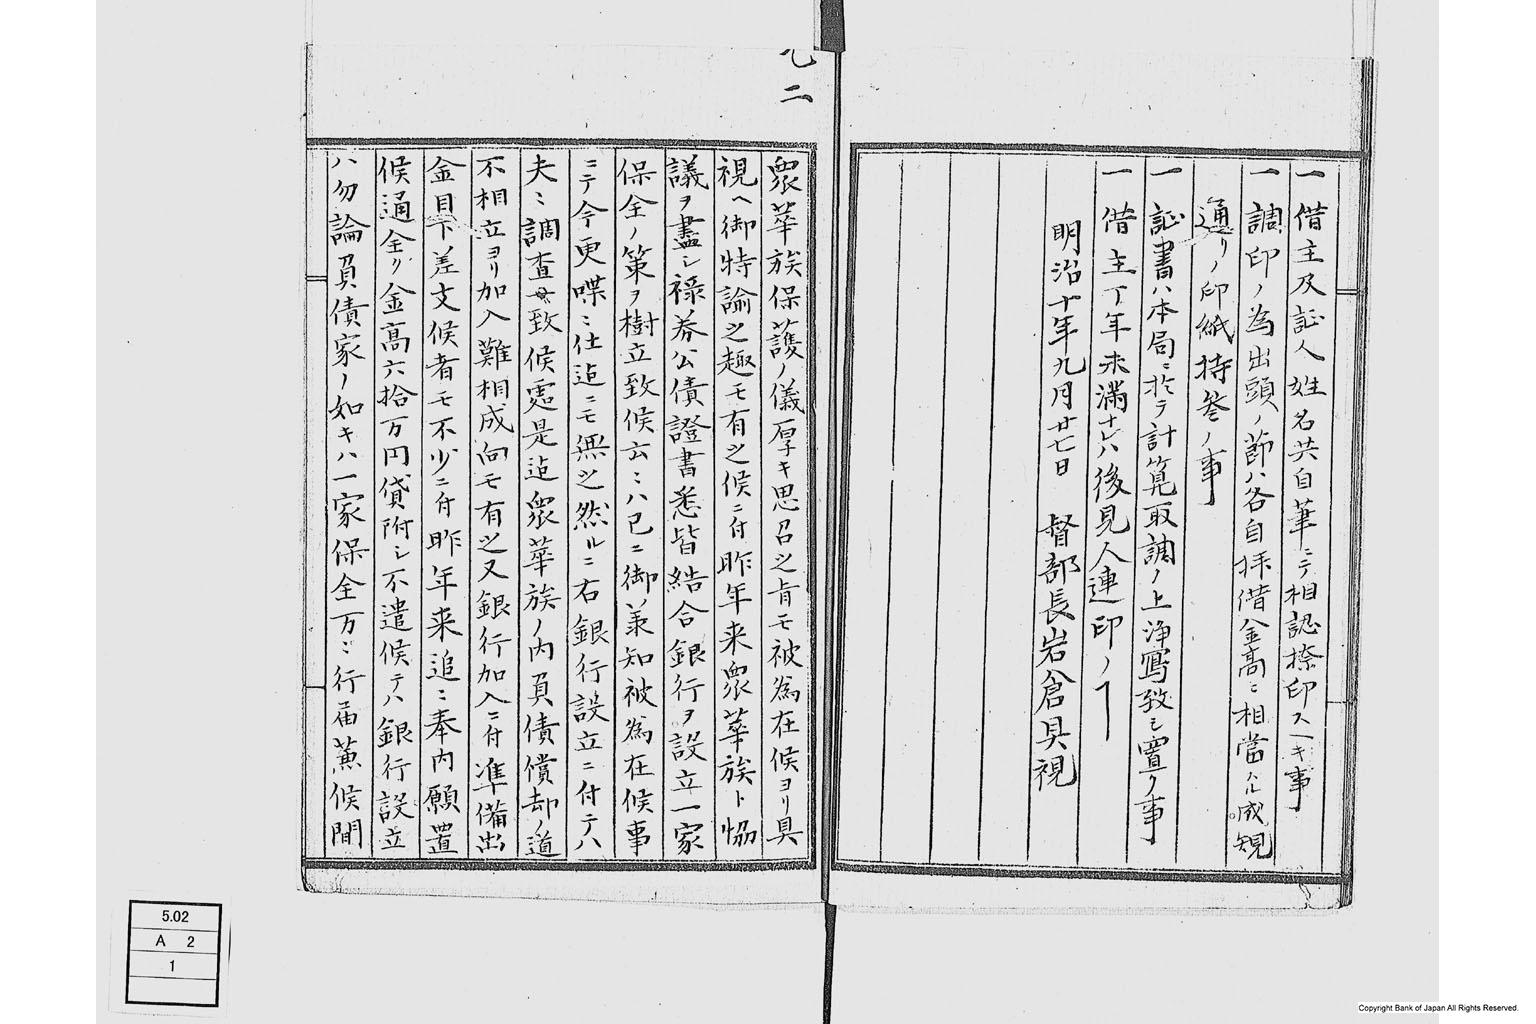 一借主及証人姓名共自筆ニテ相認捺印スヘキ事
一調印ノ為出頭ノ節ハ各自拝借金高ニ相當ハル成規
通リノ印紙持参ノ事
一証書ハ本局ニ於テ計算取調ノ上浄寫致シ置ク事
一借主丁年未満ナレハ後見人連印ノ事
明治十年九月廿七日 督部長岩倉具視
二
衆華族保護ノ儀厚キ思召之旨モ被為在候ヨリ具
視ヘ御特諭之趣モ有之候ニ付昨年来衆華族ト恊
議ヲ盡シ禄券公債證書悉皆結合銀行ヲ設立一家
保全ノ策ヲ樹立致候云ミハ已ニ御兼知被為在候事
ニテ今更喋ミ仕迠ニモ無之然ルニ右銀行設立ニ付テハ
夫ミ調査為致候處是迠衆華族ノ内負債償却ノ道
不相立ヨリ加入難相成向モ有之又銀行加入ニ付準備出
金目下差支候者モ不少ニ付昨年来追ミ奉内願置
候通金リ金高六拾万円貸附シ不遣候テハ銀行設立
ハ勿論負債家ノ如キハ一家保全万ミ行届兼候間
5.02
A 2
1
Copyright Bank of Japan All Rights Reserved.